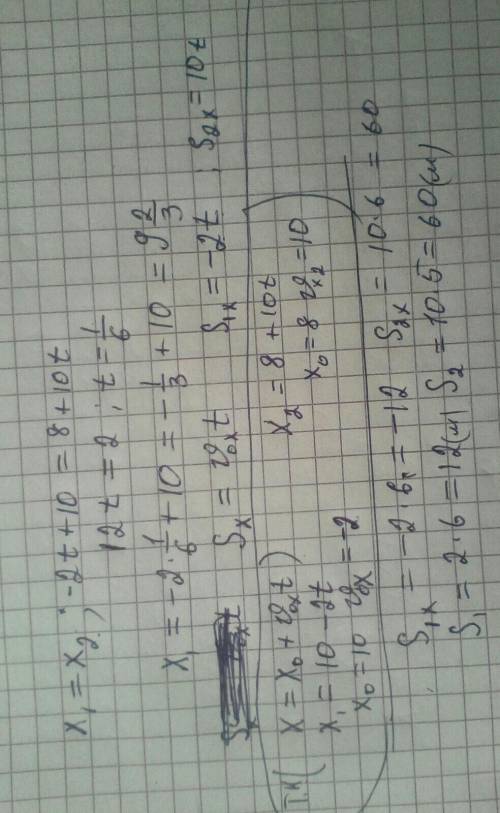 x₁ = x₂ ; -2t + 10 = 8 + 10t
12t = 2 ; t = 1/6
x₁ = -2 · 1/6 + 10 = -1/3 + 10 = 9 2/3
Sₓ = v₀ₓt S₁ₓ = -2t ; S₂ₓ = 10t
Т.к ( x = x₀ + v₀ₓt )
x₁ = 10 - 2t x₂ = 8 + 10t
x₀ = 10 v₀ₓ = -2 x₀ = 8 vₓ₂ = 10
S₁ₓ = -2 · 6 = -12 S₂ₓ = 10 · 6 = 60
S₁ = 2 · 6 = 12(м) S₂ = 10 · 5 = 60(м)